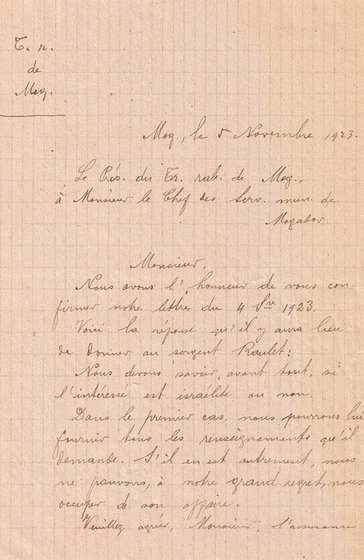 T. r.
de
Mog.
Mog, le 5 Novembre 1923.
Le Prés. du Tr. rab. de Mog.,
à Monsieur le Chef des Serv. mun. de
Mogador.
Monsieur,
Nous avons l'honneur de vous con
firmer notre lettre du 4 1923.
Voici la réponse qu'il y aura lieu
de donner au sergent Raulet:
Nous devons savoir, avant tout, si
l'intéressé est israélite ou non.
Dans le premier cas, nous pourrons lui
fournir tous les renseignements qu'il
demande. S'il en est autrement, nous
ne pouvons, à notre grand regret, nous
occuper de son affaire.
Veuillez agréer, Monsieur, l'assurance